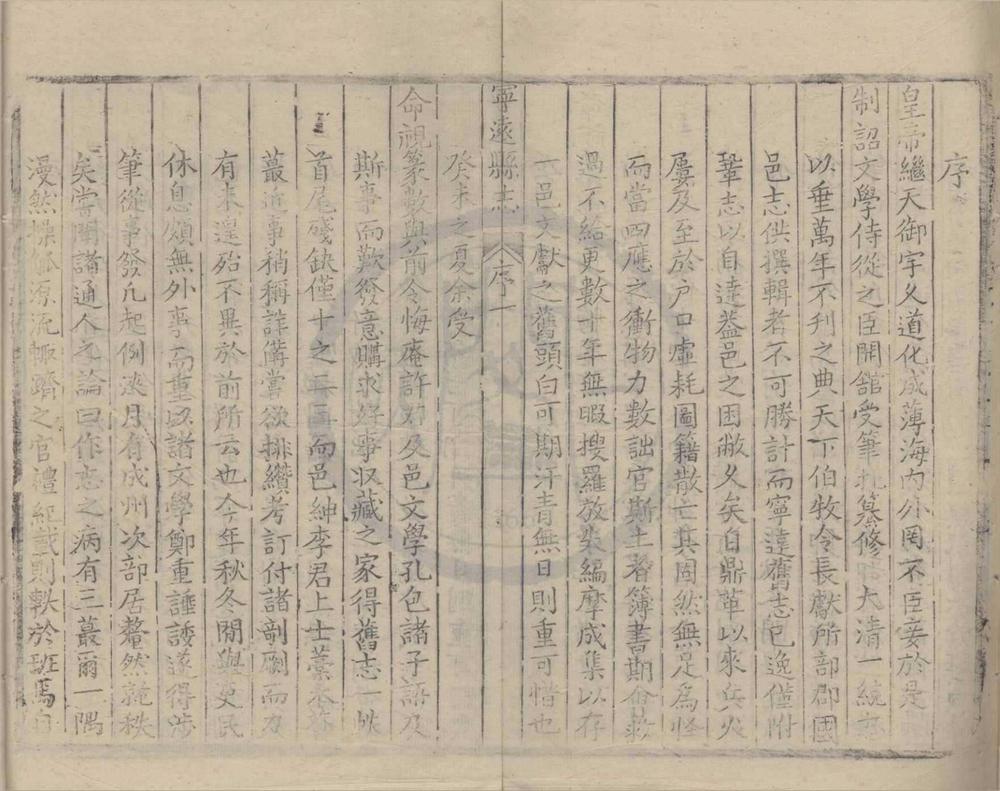 序
皇帝繼天御宇久道化成薄海內外罔不臣妾於是
制詔文學侍從之臣開舘受筆札纂修大清一統志
以垂萬年不刊之典天下伯牧令長獻所部郡國
邑志供撰輯者不可勝計而寧遠舊志已逸僅附
鞏志以自達葢邑之困敝久矣自鼎革以來兵火
屢及至於户口虛耗圖籍散亡其固然無足爲怪
而當四應之衝物力數詘官斯土者簿書期會救
過不給更數十年無暇搜羅放失編摩成集以存
一邑文獻之舊頭白可期汗青無日則重可惜也
寧遠縣志 序 一
癸未之夏余受
命視篆數與前令悔庵許君及邑文學孔包諸子語及
斯事而歎發意購求好事収藏之家得舊志一帙
首尾殘缺僅十之二三而邑紳李君上士藁本
蕞近事稍稱詳備嘗欲排纘考訂付諸剞劂而力
有未遑殆不異於前所云也今年秋冬閒與吏民
休息頗無外事而重以諸文學鄭重諈諉遂得涉
筆從事發凡起例浹月有成州次部居犛然就秩
矣嘗聞諸通人之論曰作志之病有三蕞爾一隅
漫然操觚源流輙躋之官禮紀載則軼於班馬